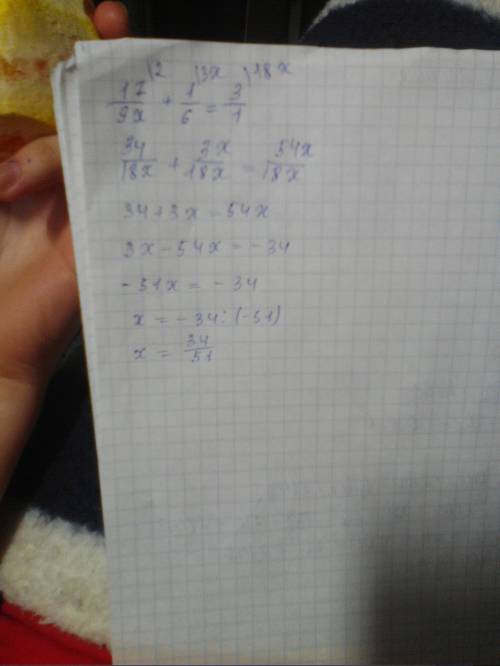 17/9x |2 + 1/6 |3x = 3/1 |18x
34/18x + 3x/18x = 54x/18x
34+3x=54x
3x-54x=-34
-51x=-34
x=-34:(-51)
x=34/51